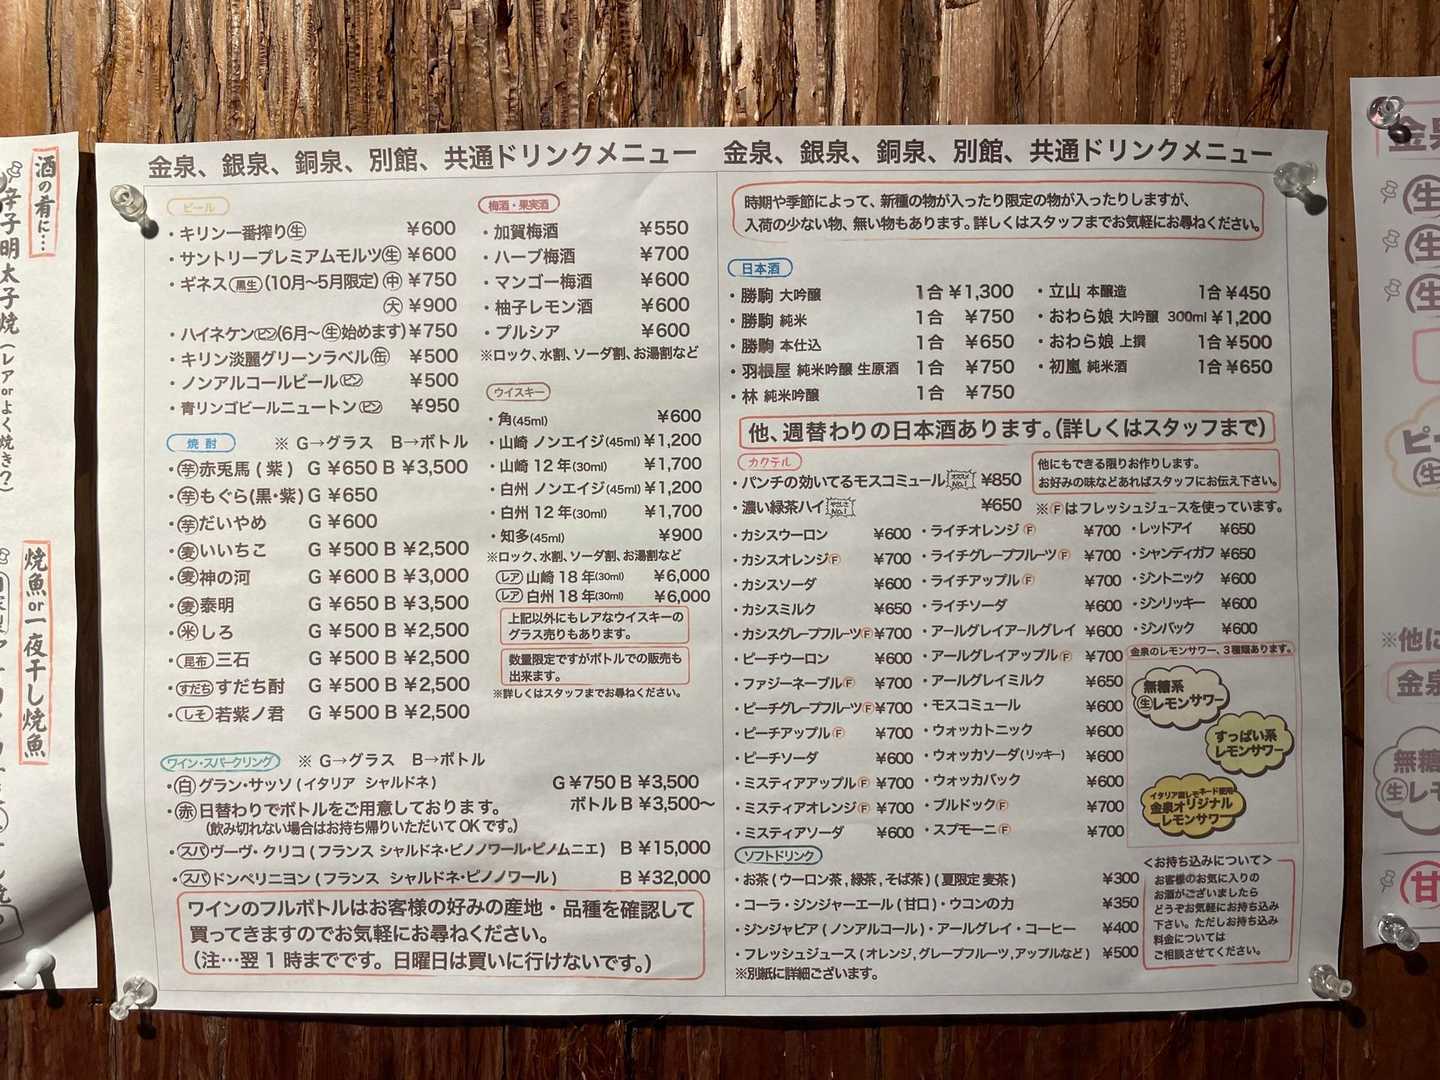 酒の肴に…
辛子明太子焼(レアorよく焼き?)
焼魚or一夜干し焼魚
金泉、銀泉、銅泉、別館、共通ドリンクメニュー
ビール
・キリン一番搾り生 ¥600
・サントリープレミアムモルツ生 ¥600
・ギネス黒生(10月〜5月限定)中 ¥750
大 ¥900
・ハイネケンビン(6月〜生始めます) ¥750
・キリン淡麗グリーンラベル缶 ¥500
・ノンアルコールビールビン ¥500
・青リンゴビールニュートンビン ¥950
焼酎 ※ G→グラス B→ボトル
・芋赤兎馬(紫) G ¥650 B ¥3,500
・芋もぐら(黒・紫) G ¥650
・芋だいやめ G ¥600
・麦いいちこ G ¥500 B ¥2,500
・麦神の河 G ¥600 B ¥3,000
・麦泰明 G ¥650 B ¥3,500
・米しろ G ¥500 B ¥2,500
・昆布三石 G ¥500 B ¥2,500
・すだちすだち酎 G ¥500 B ¥2,500
・しそ若紫ノ君 G ¥500 B ¥2,500
梅酒・果実酒
・加賀梅酒 ¥550
・ハーブ梅酒 ¥700
・マンゴー梅酒 ¥600
・柚子レモン酒 ¥600
・プルシア ¥600
※ロック、水割、ソーダ割、お湯割など
ウイスキー
・角(45ml) ¥600
・山崎 ノンエイジ(45ml) ¥1,200
・山崎 12年(30ml) ¥1,700
・白州 ノンエイジ(45ml) ¥1,200
・白州 12年(30ml) ¥1,700
・知多(45ml) ¥900
※ロック、水割、ソーダ割、お湯割など
レア 山崎 18年(30ml) ¥6,000
レア 白州 18年(30ml) ¥6,000
上記以外にもレアなウイスキーの
グラス売りもあります。
数量限定ですがボトルでの販売も
出来ます。
※詳しくはスタッフまでお尋ねください。
ワイン・スパークリング ※ G→グラス B→ボトル
・白グラン・サッソ(イタリア シャルドネ) G¥750 B ¥3,500
・赤日替わりでボトルをご用意しております。 ボトルB ¥3,500〜
(飲み切れない場合はお持ち帰りいただいてOKです。)
・スパヴーヴ・クリコ(フランス シャルドネ・ピノノワール・ピノムニエ) B ¥15,000
・スパドンペリニヨン(フランス シャルドネ・ピノノワール) B ¥32,000
ワインのフルボトルはお客様の好みの産地・品種を確認して
買ってきますのでお気軽にお尋ねください。
(注…翌1時までです。日曜日は買いに行けないです。)
金泉、銀泉、銅泉、別館、共通ドリンクメニュー
時期や季節によって、新種の物が入ったり限定の物が入ったりしますが、
入荷の少ない物、無い物もあります。詳しくはスタッフまでお気軽にお尋ねください。
日本酒
・勝駒 大吟醸 1合 ¥1,300
・勝駒 純米 1合 ¥750
・勝駒 本仕込 1合 ¥650
・羽根屋 純米吟醸 生原酒 1合 ¥750
・林 純米吟醸 1合 ¥750
・立山 本醸造 1合 ¥450
・おわら娘 大吟醸 300ml ¥1,200
・おわら娘 上撰 1合 ¥500
・初嵐 純米酒 1合 ¥650
他、週替わりの日本酒あります。(詳しくはスタッフまで)
カクテル
・パンチの効いてるモスコミュール ¥850
・濃い緑茶ハイ ¥650
他にもできる限りお作りします。
お好みの味などあればスタッフにお伝え下さい。
※Ⓕはフレッシュジュースを使っています。
・カシスウーロン ¥600
・カシスオレンジⒻ ¥700
・カシスソーダ ¥600
・カシスミルク ¥650
・カシスグレープフルーツⒻ ¥700
・ピーチウーロン ¥600
・ファジーネーブルⒻ ¥700
・ピーチグレープフルーツⒻ ¥700
・ピーチアップルⒻ ¥700
・ピーチソーダ ¥600
・ミスティアアップルⒻ ¥700
・ミスティアオレンジⒻ ¥700
・ミスティアソーダ ¥600
・ライチオレンジⒻ ¥700
・ライチグレープフルーツⒻ ¥700
・ライチアップルⒻ ¥700
・ライチソーダ ¥600
・アールグレイアールグレイ ¥600
・アールグレイアップルⒻ ¥700
・アールグレイミルク ¥650
・モスコミュール ¥600
・ウォッカトニック ¥600
・ウォッカソーダ(リッキー) ¥600
・ウォッカバック ¥600
・ブルドックⒻ ¥700
・スプモーニⒻ ¥700
・レッドアイ ¥650
・シャンディガフ ¥650
・ジントニック ¥600
・ジンリッキー ¥600
・ジンバック ¥600
金泉のレモンサワー、3種類あります。
無糖系
生レモンサワー
すっぱい系
レモンサワー
イタリア産レモネード使用
金泉オリジナル
レモンサワー
ソフトドリンク
・お茶(ウーロン茶,緑茶,そば茶)(夏限定 麦茶) ¥300
・コーラ・ジンジャーエール(甘口)・ウコンの力 ¥350
・ジンジャビア(ノンアルコール)・アールグレイ・コーヒー ¥400
・フレッシュジュース(オレンジ,グレープフルーツ,アップルなど) ¥500
※別紙に詳細ございます。
<お持ち込みについて>
お客様のお気に入りの
お酒がございましたら
どうぞお気軽にお持ち込み
下さい。ただしお持ち込み
料金については
ご相談させてください。
金泉
生
生
生
ピー
生
※他に
金泉
無糖
生レモ
甘